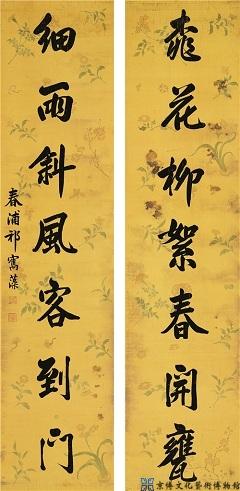 桃花柳絮春開甕
細雨斜風客到門
春浦祁寯藻
京傳文化藝術博物館